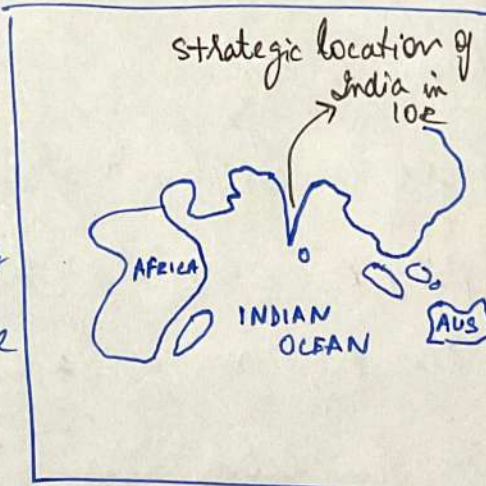 strategic location of
India in
IOR
AFRICA
INDIAN
OCEAN
AUS